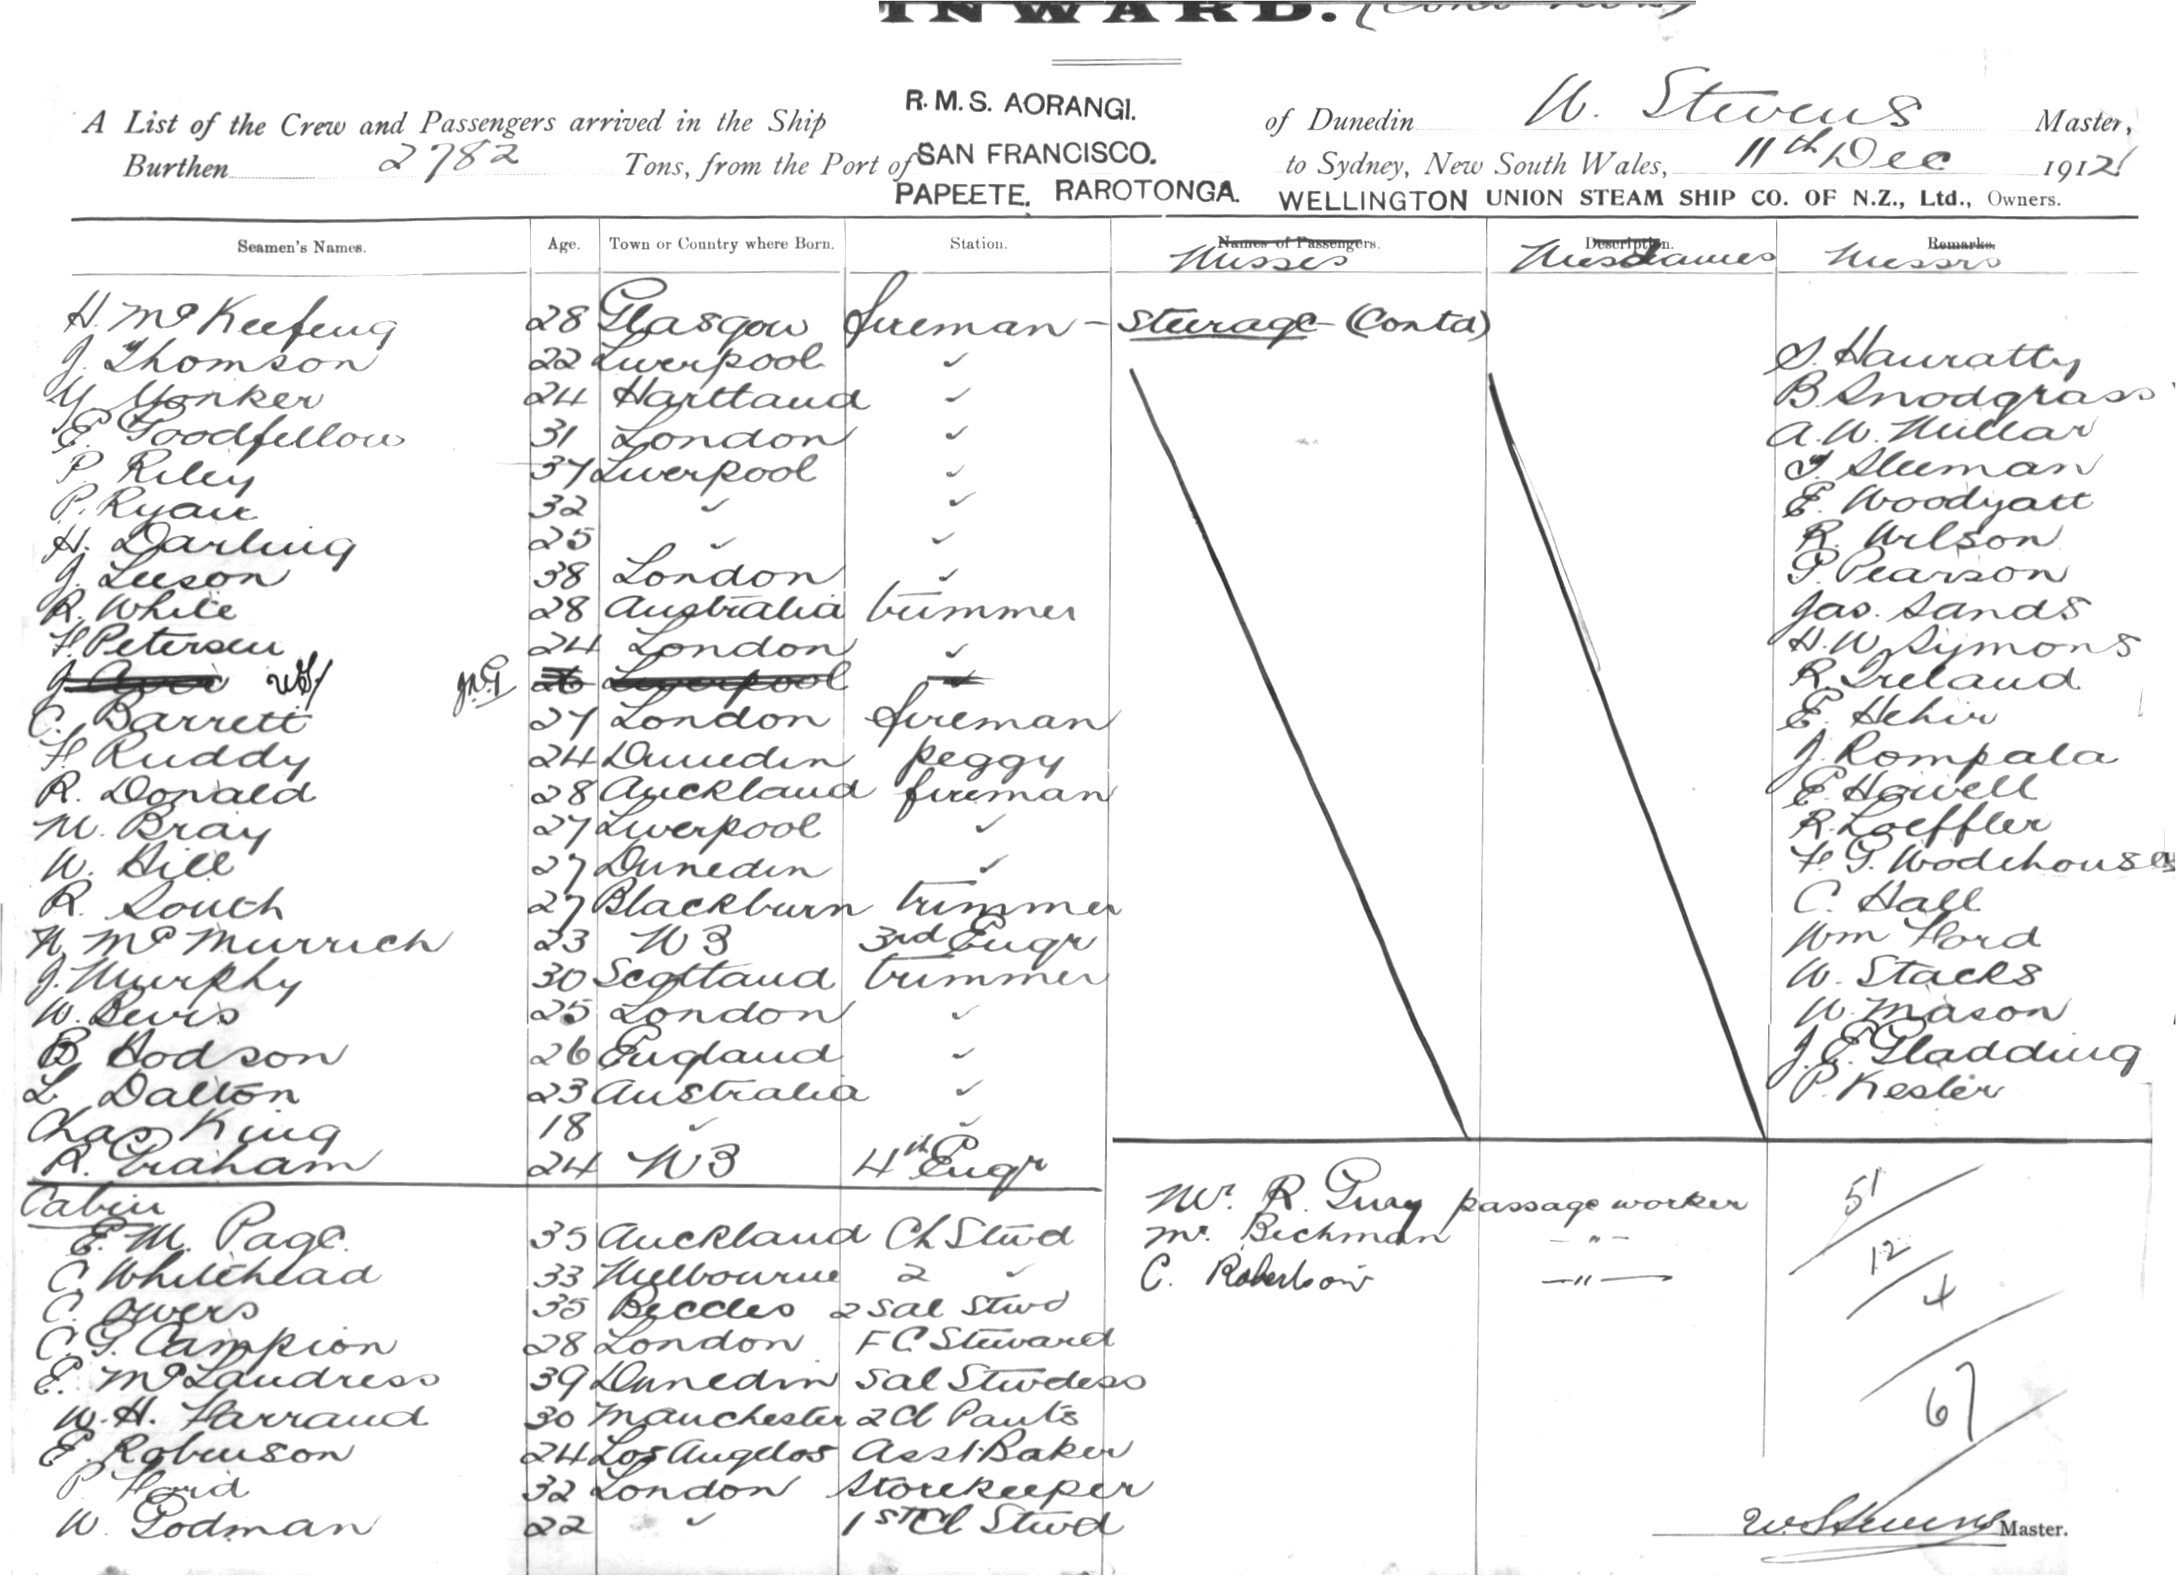 INWARD.
R.M.S. AORANGI.
A List of the Crew and Passengers arrived in the Ship of Dunedin W. Stevens Master,
Burthen 2782 Tons, from the Port of SAN FRANCISCO. to Sydney, New South Wales, 11th Dec 1912
PAPEETE. RAROTONGA. WELLINGTON UNION STEAM SHIP CO. OF N.Z., Ltd., Owners.
Seamen's Names. Age. Town or Country where Born. Station. Names of Passengers. Description. Remarks.
Misses Mesdames Messrs
H. McKeefeng 28 Glasgow fireman - Steerage - (Contd)
J. Thomson 22 Liverpool ✓ S. Hanratty
Y Yonker 24 Hartland ✓ B Snodgrass
E. Goodfellow 31 London ✓ A. W. Millar
P Riley 37 Liverpool ✓ T Sleeman
P. Ryan 32 ✓ ✓ E. Woodyatt
H. Darling 25 ✓ ✓ R. Wilson
J. Leeson 38 London ✓ P. Pearson
R. White 28 Australia trimmer Jas. Sands
F. Petersen 24 London ✓ H. W. Symons
J. 26 Liverpool R. Ireland
C. Barrett 27 London fireman E. Hehir
F Ruddy 24 Dunedin peggy J. Rompala
R. Donald 28 Auckland fireman E. Howell
M. Bray 27 Liverpool ✓ R. Loeffler
W. Hill 27 Dunedin ✓ F. G. Wodehouse
R. South 27 Blackburn trimmer C. Hall
N McMurrich 23 NZ 3rd Engr Wm Ford
J. Murphy 30 Scotland trimmer W. Stacks
W. Bevis 25 London ✓ W. Mason
B Hodson 26 England ✓ J. E. Gladding
L. Dalton 23 Australia ✓ P. Kesler
Chas King 18 ✓ ✓
R. Graham 24 NZ 4th Engr
Cabin Mr. R. Gray passage worker 51
E. M. Page 35 Auckland Ch Stwd Mr. Bechman - " - 12
C. Whitehead 33 Melbourne 2 ✓ C. Robertson - " - 4
C. Owers 35 Beccles 2 Sal Stwd
C. G. Campion 28 London F C Steward
E. McLandress 39 Dunedin Sal Stwdess
W. H. Farrand 30 Manchester 2 Cl Pant's 67
E. Robinson 24 Los Angelos Asst Baker
P Ford 32 London Storekeeper
W. Godman 22 ✓ 1st Cl Stwd W. Stevens Master.